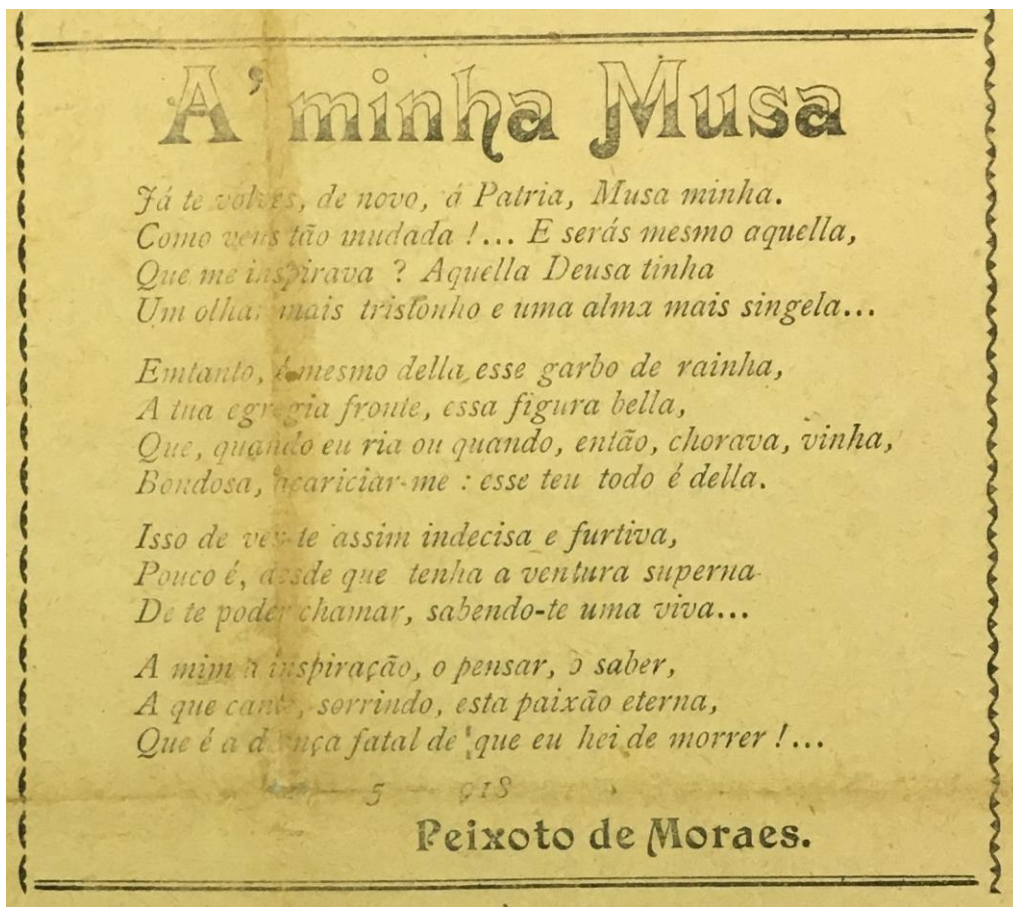 A' minha Musa
Já te volves, de novo, á Patria, Musa minha.
Como vens tão mudada !... E serás mesmo aquella,
Que me inspirava ? Aquella Deusa tinha
Um olhar mais tristonho e uma alma mais singela...
Emtanto, é mesmo della, esse garbo de rainha,
A tua egregia fronte, essa figura bella,
Que, quando eu ria ou quando, então, chorava, vinha,
Bondosa, acariciar-me : esse teu todo é della.
Isso de ver-te assim indecisa e furtiva,
Pouco é, desde que tenha a ventura superna
De te poder chamar, sabendo-te uma viva...
A mim a inspiração, o pensar, o saber,
A que cante, sorrindo, esta paixão eterna,
Que é a fatal de que eu hei de morrer !...
5 918
Peixoto de Moraes.